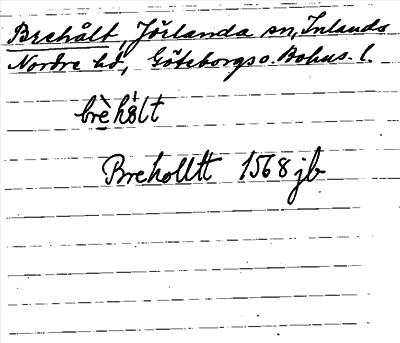 Brehålt, Jörlanda sn, Inlands
Nordre hd, Göteborgs o. Bohus. l.
brèhålt
Breholltt 1568 jb